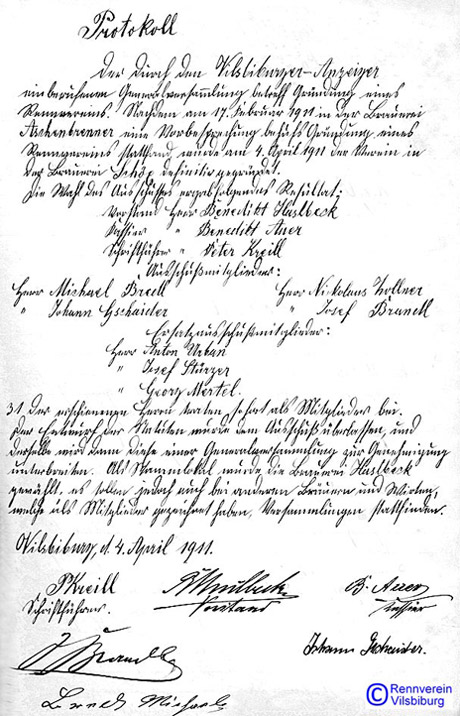 Protokoll
Der durch den Vilsbiburger-Anzeiger
einberufenen Generalversammlung betreff Gründung eines
Rennvereins. Nachdem am 17. Februar 1911 in der Brauerei
Aschenbrenner eine Vorbesprechung behufs Gründung eines
Rennvereins stattfand, wurde am 4. April 1911 der Verein in
der Brauerei Schöx definitiv gegründet.
Die Wahl des Ausschusses ergab folgendes Resultat:
Vorstand Herr Benedikt Haslbeck
Kassier " Benedikt Auer
Schriftführer " Peter Kreill
Ausschußmitglieder:
Herr Michael Bredl Herr Nikolaus Zollner
" Johann Gschaider " Josef Brandl
Ersatzausschußmitglieder:
Herr Anton Urban
" Josef Stürzer
" Georg Mertel.
31 der erschienenen Herrn traten sofort als Mitglieder bei.
Der Entwurf der Statuten wurde dem Ausschuß überlassen, und
derselbe wird dann diese einer Generalversammlung zur Genehmigung
unterbreiten. Als Stammlokal wurde die Brauerei Haslbeck
gewählt, es sollen jedoch auch bei anderen Bräuern und Wirten,
welche als Mitglieder gezeichnet haben, Versammlungen stattfinden.
Vilsbiburg, d. 4. April 1911.
PKreill B. Auer
Schriftführer. Vorstand Kassier
Brandl Johann Gschaider.
Bredl Michael
© Rennverein
Vilsbiburg